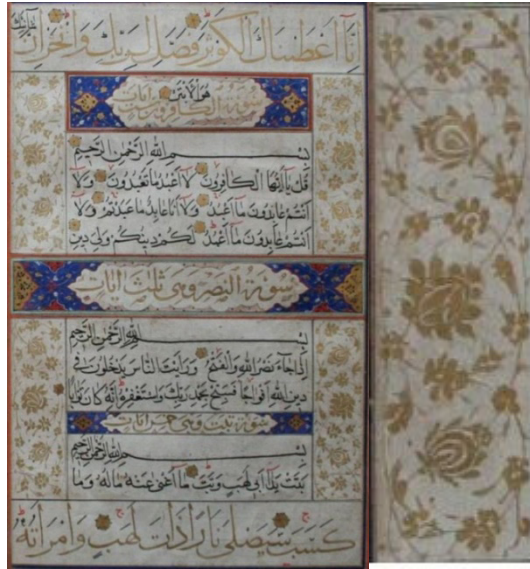 إنا أعطيناك الكوثر فصل لربك وانحر إن
شانئك
هو الأبتر
سورة الكافرون ست آيات
بسم الله الرحمن الرحيم
قل يا أيها الكافرون لا أعبد ما تعبدون ولا
أنتم عابدون ما أعبد ولا أنا عابد ما عبدتم ولا
أنتم عابدون ما أعبد لكم دينكم ولي دين
سورة النصر وهي ثلث آيات
بسم الله الرحمن الرحيم
إذا جاء نصر الله والفتح ورأيت الناس يدخلون في
دين الله أفواجا فسبح بحمد ربك واستغفره إنه كان توابا
سورة تبت وهي خمس آيات
بسم الله الرحمن الرحيم
تبت يدا أبي لهب وتب ما أغنى عنه ماله وما
كسب سيصلى نارا ذات لهب وامرأته